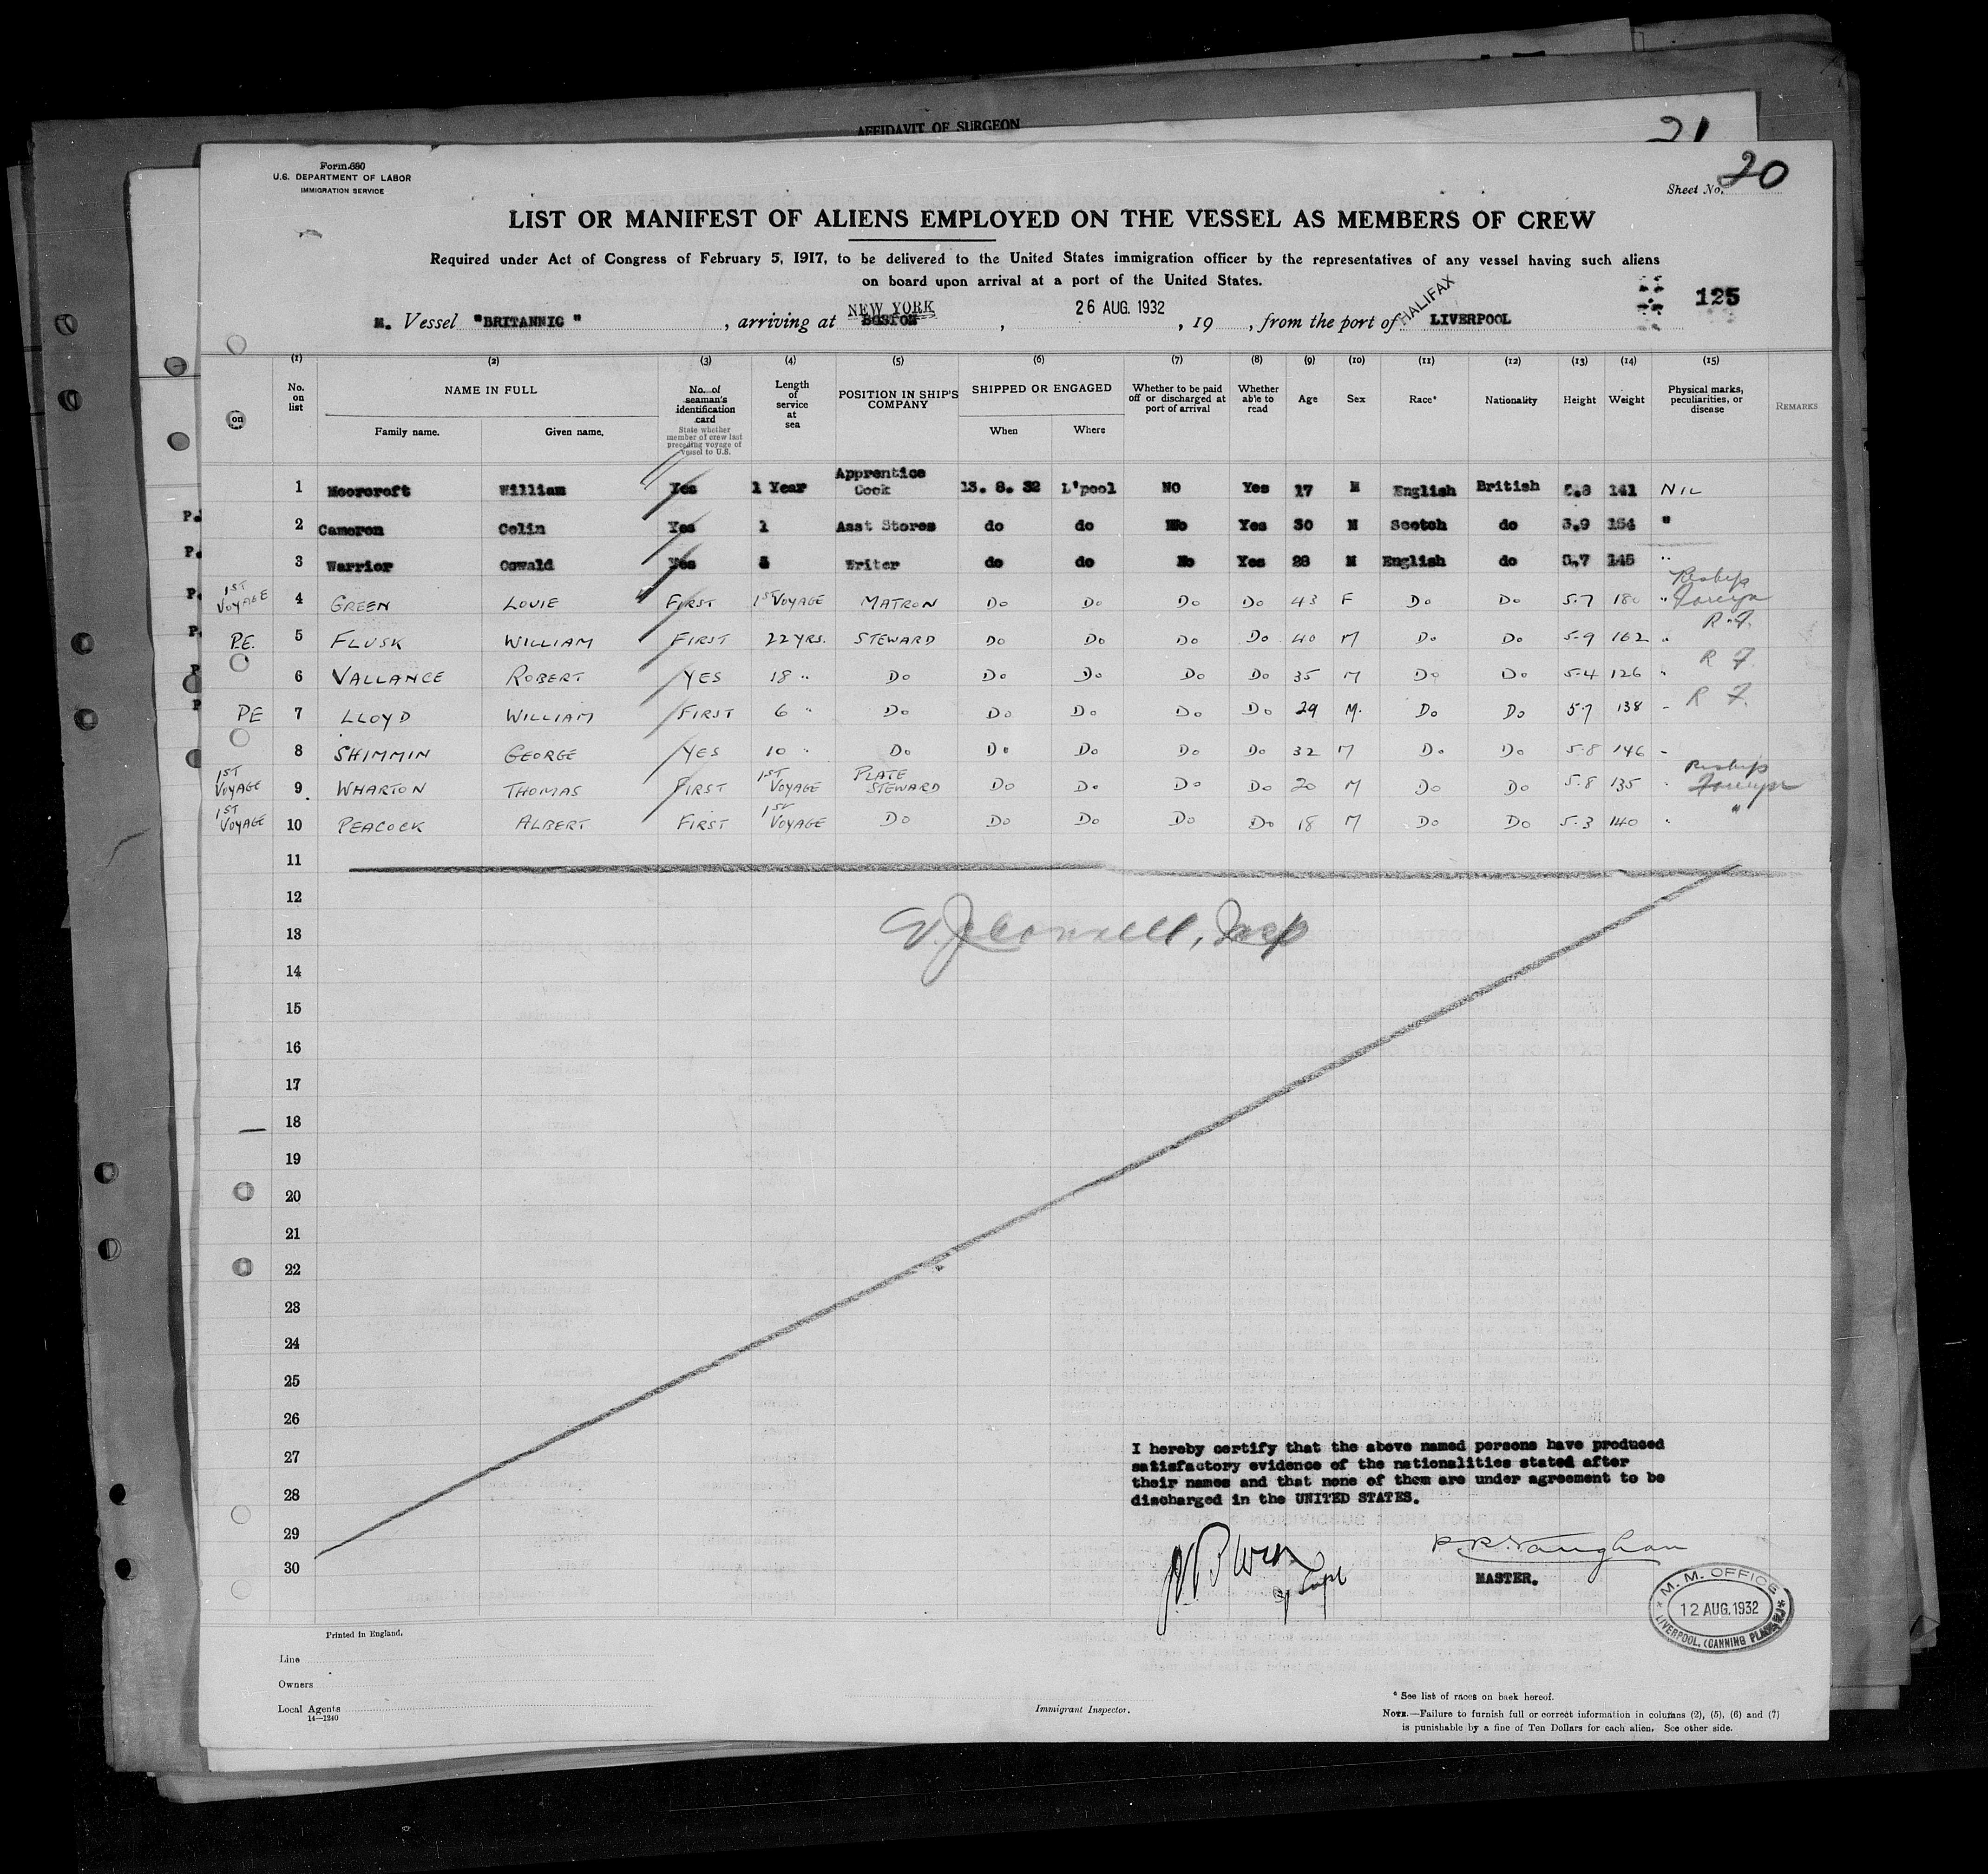 AFFIDAVIT OF SURGEON
21
Form 680
U.S. DEPARTMENT OF LABOR
IMMIGRATION SERVICE
Sheet No. 20
LIST OR MANIFEST OF ALIENS EMPLOYED ON THE VESSEL AS MEMBERS OF CREW
Required under Act of Congress of February 5, 1917, to be delivered to the United States immigration officer by the representatives of any vessel having such aliens
on board upon arrival at a port of the United States.
M. Vessel "BRITANNIC", arriving at NEW YORK BOSTON, 26 AUG. 1932, 19 , from the port of HALIFAX LIVERPOOL
125
(1) (2) (3) (4) (5) (6) (7) (8) (9) (10) (11) (12) (13) (14) (15)
on
No. on list
NAME IN FULL
Family name. Given name.
No. of seaman's identification card
State whether member of crew last preceding voyage of vessel to U.S.
Length of service at sea
POSITION IN SHIP'S COMPANY
SHIPPED OR ENGAGED
When Where
Whether to be paid off or discharged at port of arrival
Whether able to read
Age
Sex
Race*
Nationality
Height
Weight
Physical marks, peculiarities, or disease
REMARKS
1 Moorcroft William Yes 1 Year Apprentice Cook 13. 8. 32 L'pool NO Yes 17 M English British 5.8 141 NIL
2 Cameron Colin Yes 1 Asst Stores do do No Yes 30 M Scotch do 5.9 154 "
3 Warrior Oswald Yes 5 Writer do do No Yes 28 M English do 5.7 145 "
1ST VOYAGE 4 GREEN LOUIE FIRST 1ST VOYAGE MATRON Do Do Do Do 43 F Do Do 5.7 180 " Reship Foreign
P.E. 5 FLUSK WILLIAM FIRST 22 YRS. STEWARD Do Do Do Do 40 M Do Do 5-9 162 " R.F.
6 VALLANCE ROBERT YES 18 " Do Do Do Do Do 35 M Do Do 5-4 126 " R F.
PE 7 LLOYD WILLIAM FIRST 6 " Do Do Do Do Do 29 M. Do Do 5.7 138 " R F.
8 SHIMMIN GEORGE YES 10 " Do Do Do Do Do 32 M Do Do 5-8 146 "
1ST VOYAGE 9 WHARTON THOMAS FIRST 1ST VOYAGE PLATE STEWARD Do Do Do Do 20 M Do Do 5.8 135 " Reship Foreign
1ST VOYAGE 10 PEACOCK ALBERT FIRST 1ST VOYAGE Do Do Do Do Do 18 M Do Do 5.3 140 " "
11
12
13
14
15
16
17
18
19
20
21
22
23
24
25
26
27
28
29
30
I hereby certify that the above named persons have produced
satisfactory evidence of the nationalities stated after
their names and that none of them are under agreement to be
discharged in the UNITED STATES.
MASTER.
M. M. OFFICE
12 AUG. 1932
LIVERPOOL, (CANNING PLACE)
Printed in England.
Line
Owners
Local Agents
14—1240
Immigrant Inspector.
* See list of races on back hereof.
NOTE.—Failure to furnish full or correct information in columns (2), (5), (6) and (7)
is punishable by a fine of Ten Dollars for each alien. See other side.